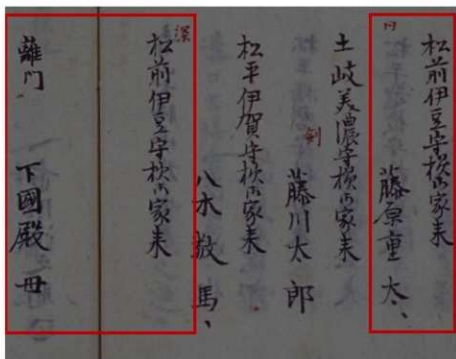 松前伊豆守様御家来
同
藤原重太
土岐美濃守様御家来
剣
藤川太郎
松平伊賀守様御家来
八木数馬
漢
松前伊豆守様御家来
離門 下國殿母